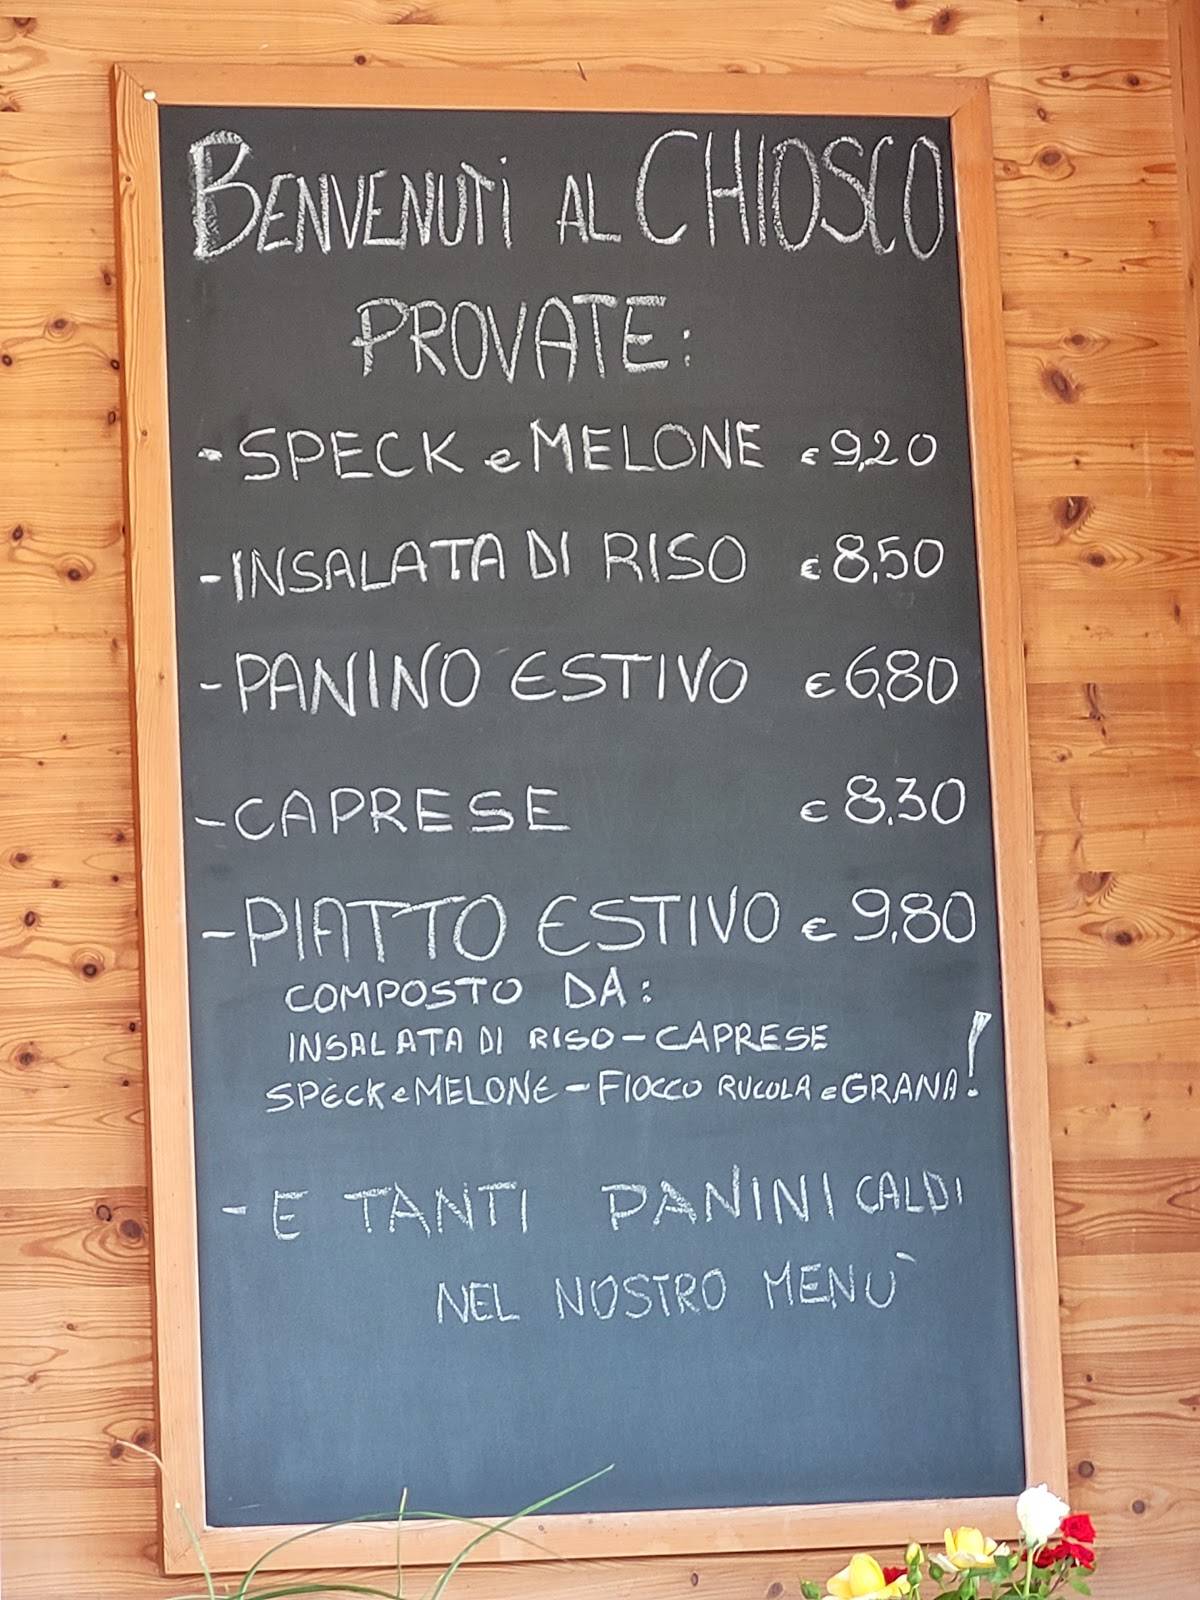 BENVENUTi AL CHIOSCO
PROVATE:
- SPECK e MELONE € 9,20
- INSALATA DI RISO € 8,50
- PANINO ESTIVO € 6,80
- CAPRESE € 8,30
- PIATTO ESTIVO € 9,80
COMPOSTO DA:
INSALATA DI RISO - CAPRESE
SPECK e MELONE - FIOCCO RUCOLA e GRANA!
- E TANTI PANINI CALDI
NEL NOSTRO MENÙ